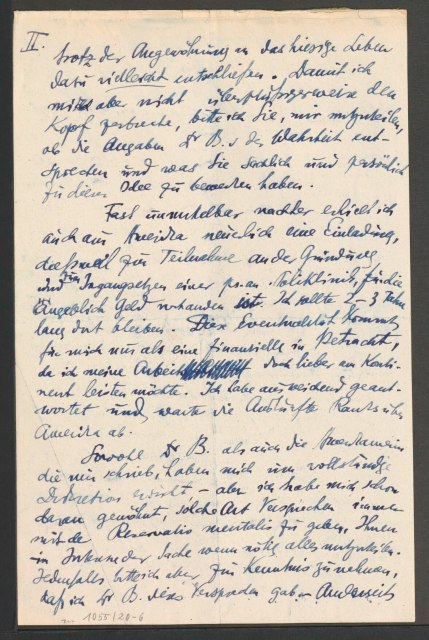 II.
trotz der Angewöhnung an das hiesige Leben
dazu vielleicht entschließen. Damit ich
mir aber nicht überflüssigerweise den
Kopf zerbreche, bitte ich Sie, mir mitzuteilen,
ob die Angaben Dr B.s der Wahrheit ent-
sprechen und was Sie sachlich und persönlich
zu dieser Idee zu bemerken haben.
Fast unmittelbar nachher erhielt ich
auch aus Amerika neuerlich eine Einladung,
diesmal zur Teilnahme an der Gründung
und zum Ingangsetzen einer ps.an. Poliklinik, für die
angeblich Geld vorhanden ist. Ich sollte 2-3 Jahre
lang dort bleiben. Diese Eventualität kommt
für mich nur als eine finanzielle in Betracht,
da ich meine Arbeit doch lieber am Konti-
nent leisten möchte. Ich habe ausweichend geant-
wortet und warte die Auskünfte Ranks über
Amerika ab.
Sowohl Dr B. als auch die Amerikanerin
die mir schrieb, haben mich um vollständige
Diskretion ersucht, - aber ich habe mich schon
daran gewöhnt, solche Art Versprechen immer
mit der Reservatio mentalis zu geben, Ihnen
im Interesse der Sache wenn nötig alles mitzuteilen.
Jedenfalls bitte ich aber zur Kenntnis zu nehmen,
daß ich Dr B. dies Versprechen gab. Anderseits
1055/20-6